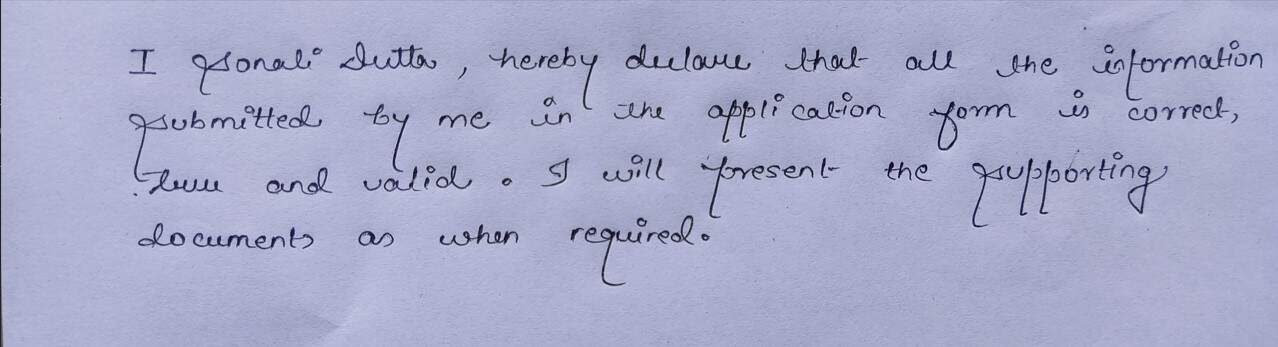 I Sonali Dutta, hereby declare that all the information
submitted by me in the application form is correct,
true and valid. I will present the supporting
documents as when required.